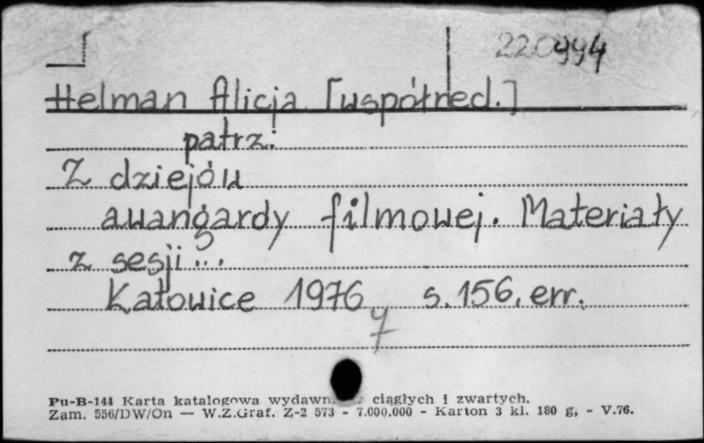 220994
Helman Alicja [współred.]
patrz:
Z dziejów
awangardy filmowej. Materiały
z sesji...
Katowice 1976 s. 156, err.
Pu-B-144 Karta katalogowa ciągłych i zwartych.
Zam. 556/DW/On — W.Z.Graf. Z-2 573 - 7.000.000 - Karton 3 kl. 180 g, - V.76.